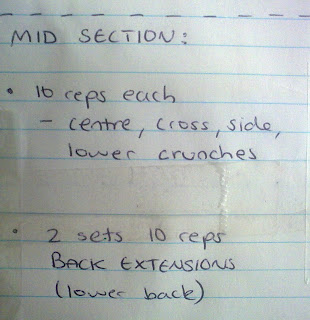 MID SECTION:
• 10 reps each
- centre, cross, side,
lower crunches
• 2 sets 10 reps
BACK EXTENSIONS
(lower back)